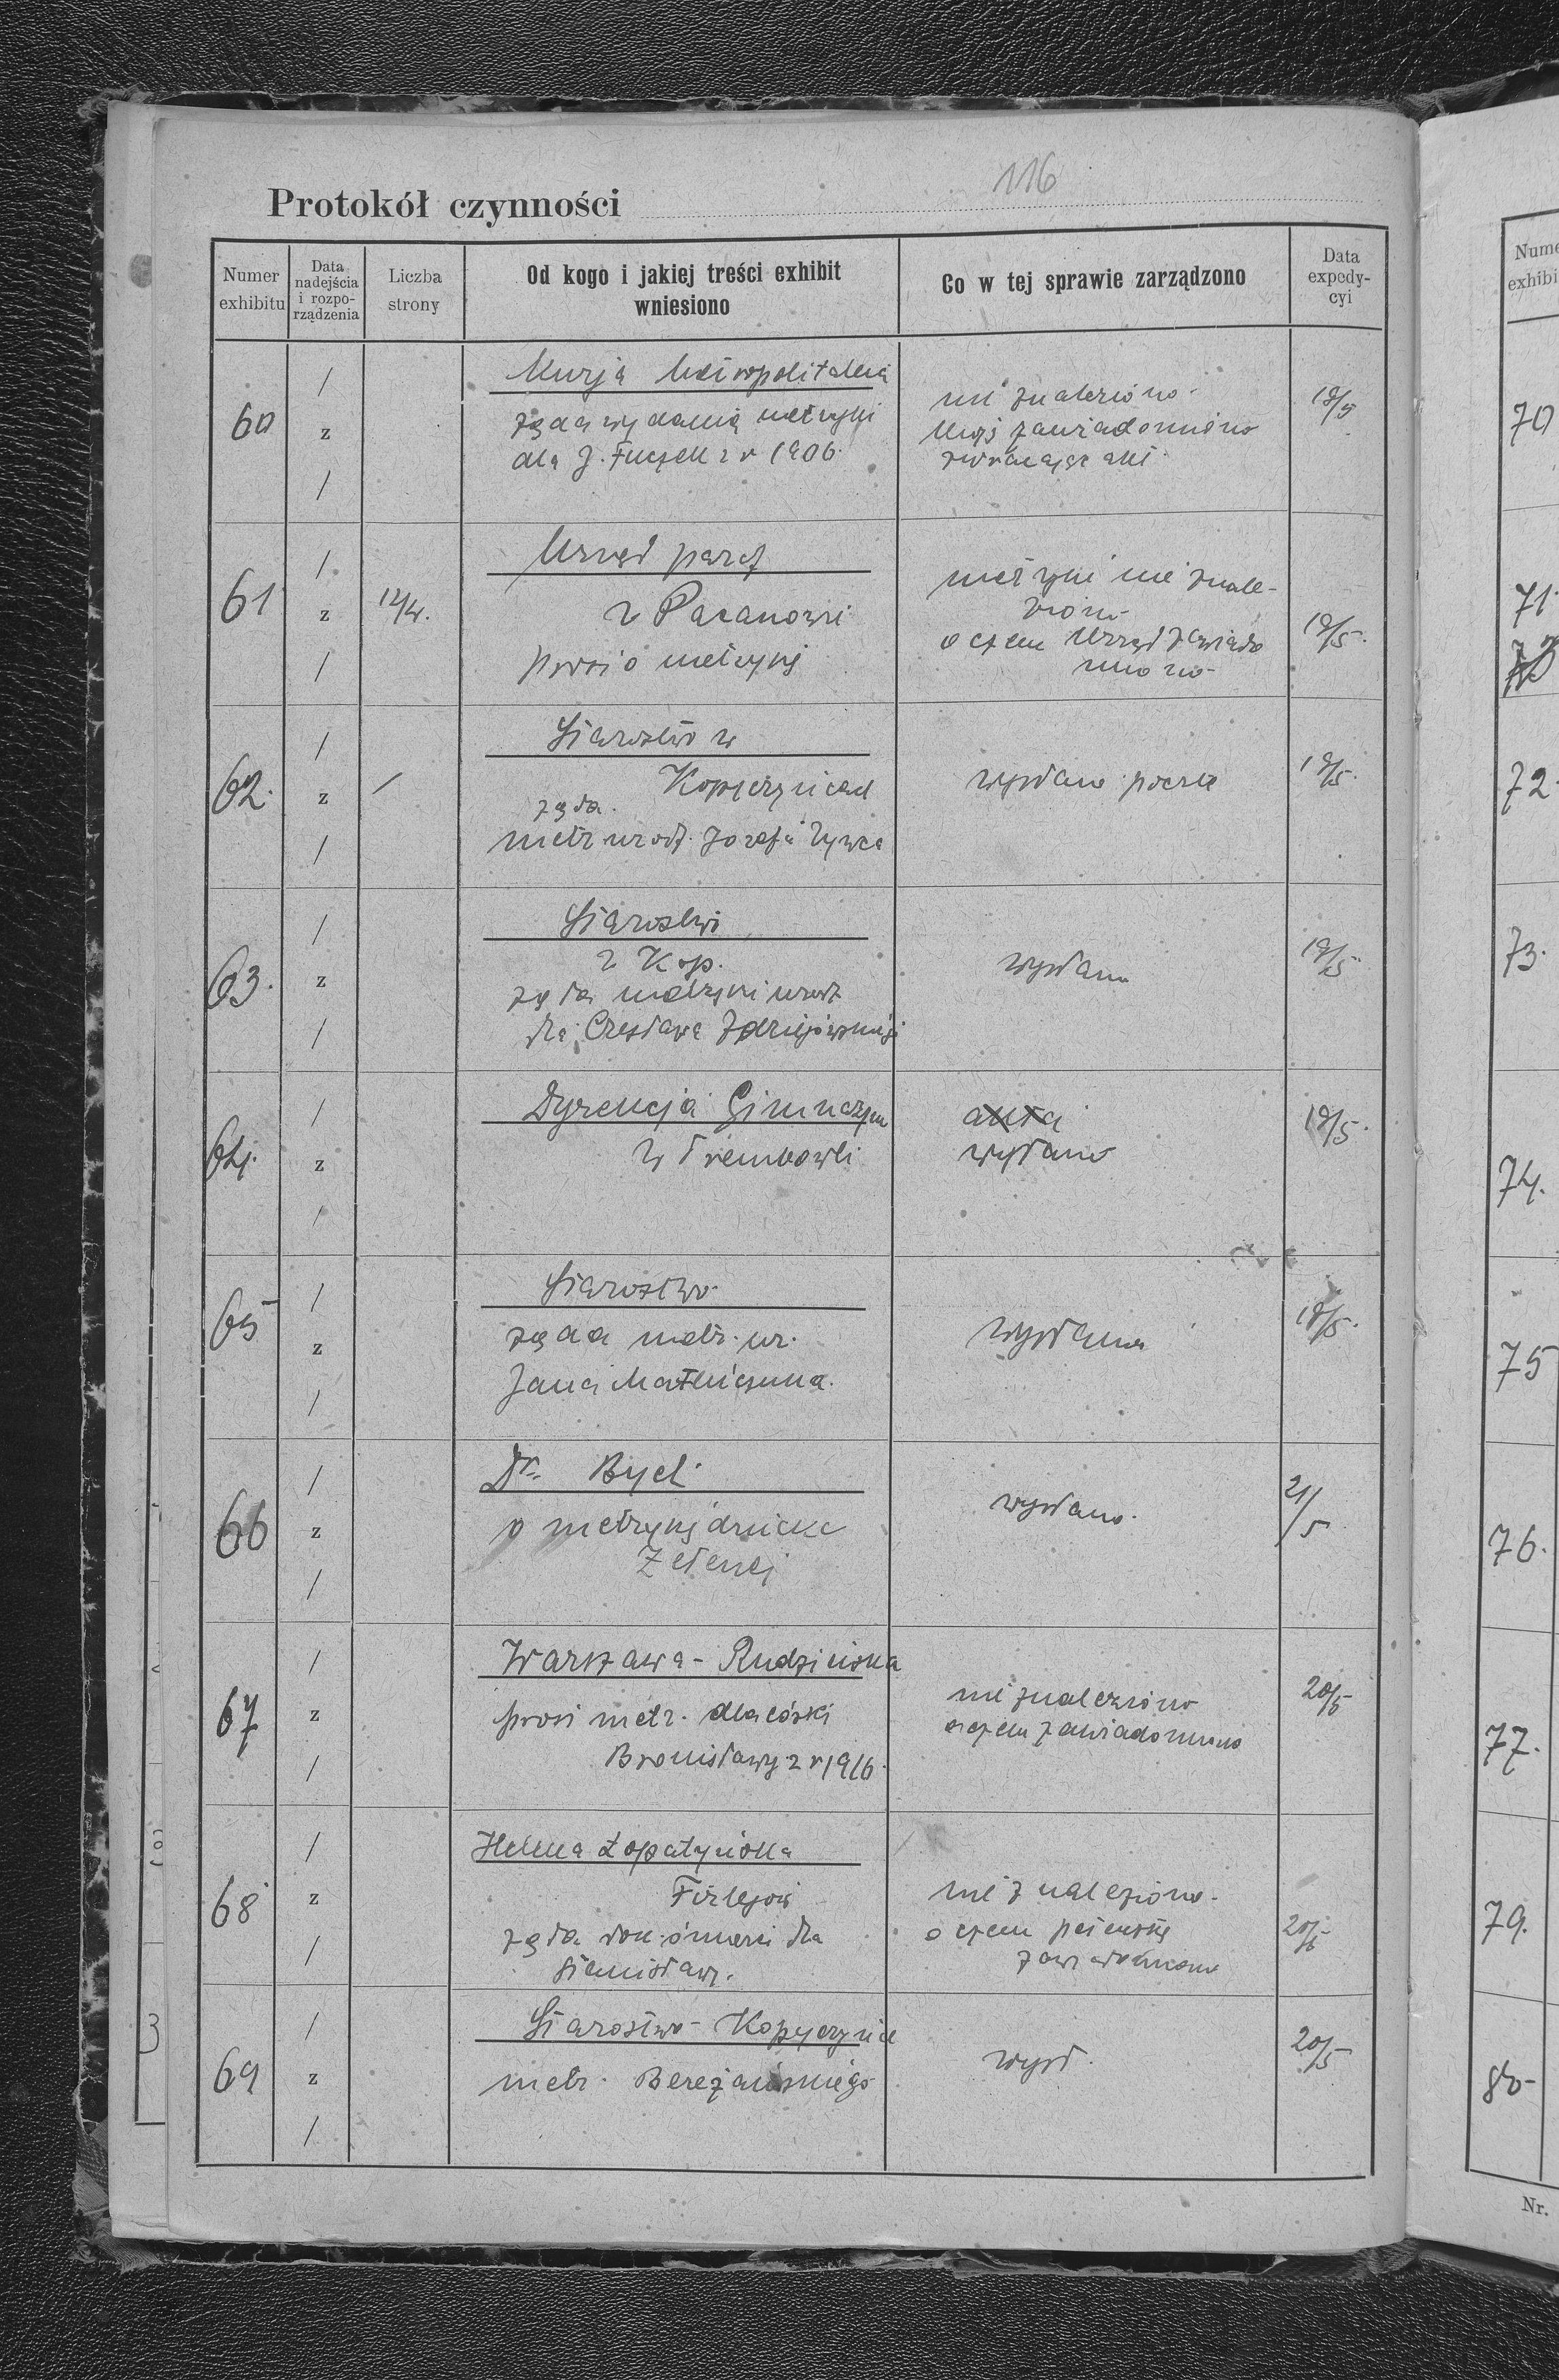 116
Protokół czynności
Numer exhibitu
Data nadejścia i rozporządzenia
Liczba strony
Od kogo i jakiej treści exhibit wniesiono
Co w tej sprawie zarządzono
Data expedycyi
60
/ z /
Kurja Metropolitalna
żąda wydania metryki
dla J. z r 1906.
nie znaleziono
Kurję zawiadomiono
zwracając akt
19/5
61
/ z /
12/4.
Urząd paraf
w Pacanowie
prosi o metrykę
metryki nie znale-
ziono
o czem Urząd zawiado
miono
19/5.
62.
/ z /
Starostwo w
Kopyczyńcach
żąda.
metr urodz. Józefa Żywca
wysłano pocztą
19/5.
63.
/ z /
Starostwo
w Kop.
żąda metryki urodz
dla Czesława
wysłano
19/5
64.
/ z /
Dyrekcja Gimnazjum
w Trembowli
wysłano
19/5.
65
/ z /
Starostwo
żąda metr. ur.
Jana
wysłano
19/5.
66
/ z /
Dr.
o metrykę
wysłano.
21/5
67
/ z /
Warszawa - Rudzińska
prosi metr. dla córki
Bronisławy z r 1916.
nie znaleziono
o czem zawiadomiono
20/5
68
/ z /
Helena Łopatyńska
Firlejów
żąda dok. śmierci dla
Stanisław.
nie znaleziono.
o czem petentkę
zawiadomiono
20/5
69
/ z /
Starostwo - Kopyczyńce
metr. Bereżańskiego
wysł.
20/5
Nume
exhibi
70
71.
72.
73.
74.
75
76.
77.
79.
80
Nr.
3